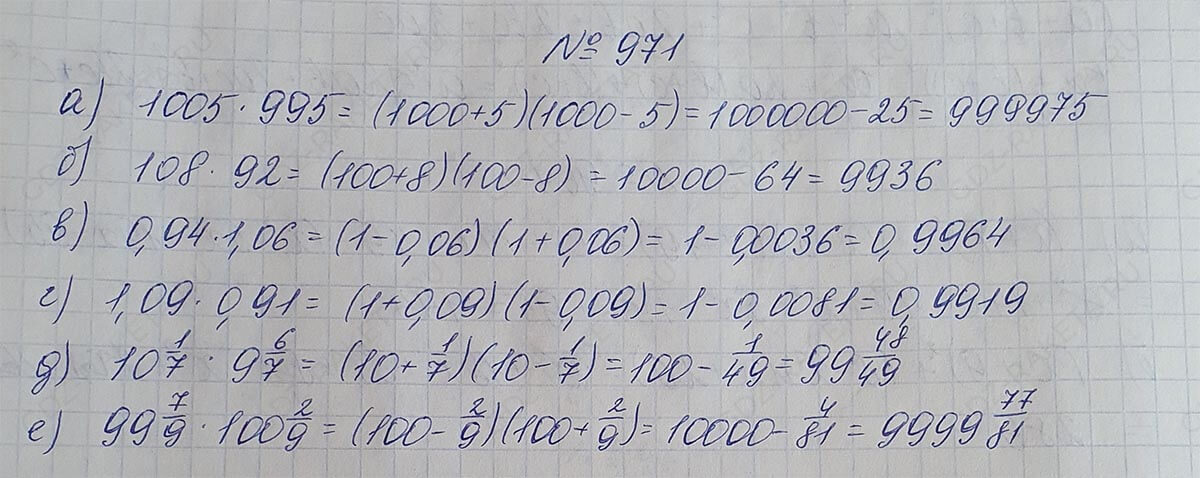 № 971
а) 1005 · 995 = (1000+5)(1000-5) = 1000000-25 = 999975
б) 108 · 92 = (100+8)(100-8) = 10000-64 = 9936
в) 0,94 · 1,06 = (1-0,06)(1+0,06) = 1-0,0036 = 0,9964
г) 1,09 · 0,91 = (1+0,09)(1-0,09) = 1-0,0081 = 0,9919
д) 10 1/7 · 9 6/7 = (10+1/7)(10-1/7) = 100-1/49 = 99 48/49
е) 99 7/9 · 100 2/9 = (100-2/9)(100+2/9) = 10000-4/81 = 9999 77/81